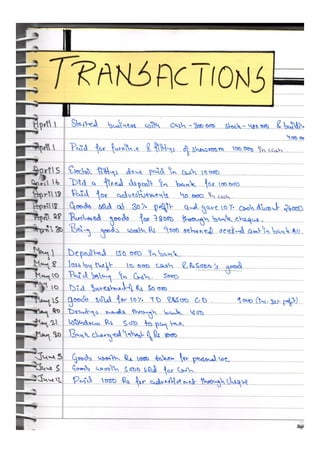 TRANSACTIONS
April 1 Started business with cash - 300000 stock - 400000 & buildin
400000
April 1 Paid for furniture & fittings of showroom 100 000 in cash
April 5 Electric fittings done paid in cash 10000
April 16 Did a fixed deposit in bank for 100000
April 18 Paid for advertisements 40 000 in cash
April 18 Goods sold at 30% profit and gave 10% cash discount
April 28 Purchased goods for through bank cheque.
April 30 Being goods worth Rs 9000 returned and in bank A/c.
May 1 Deposited 150 000 in bank.
May 8 loss by theft 10 000 cash & Rs 5000's good
May 10 Paid salary in Cash. 5000
May 10 Did Investment of Rs 50 000
May 15 goods sold for 10% TD C.D. profit)
May 20 Drawings made through bank 800
May 21 Withdrew Rs 500 to pay
May 30 Bank charged interest of Rs
June 5 Goods worth Rs 1000 taken for personal use
June 5 Goods worth 5000 sold for Cash
June 12 Paid 1000 Rs for advertisement through cheque